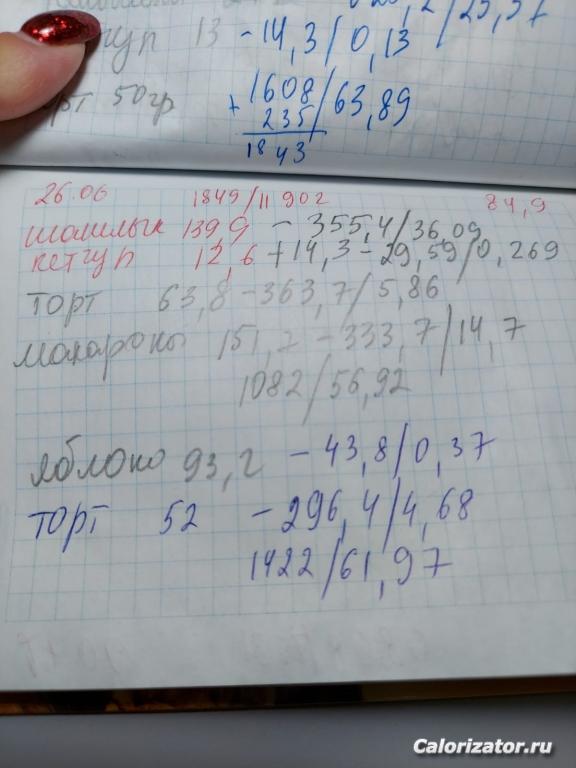 13 - 14,3/0,13
50гр + 1608/63,89
235
1843
26.06 1849/11902 84,9
шашлык 139г - 355,4/36,09
кетчуп 12,6+14,3 - 29,59/0,269
торт 63,8 - 363,7/5,86
макароны 151,2 - 333,7/14,7
1082/56,92
яблоко 93,2 - 43,8/0,37
торт 52 - 296,4/4,68
1422/61,97
Calorizator.ru